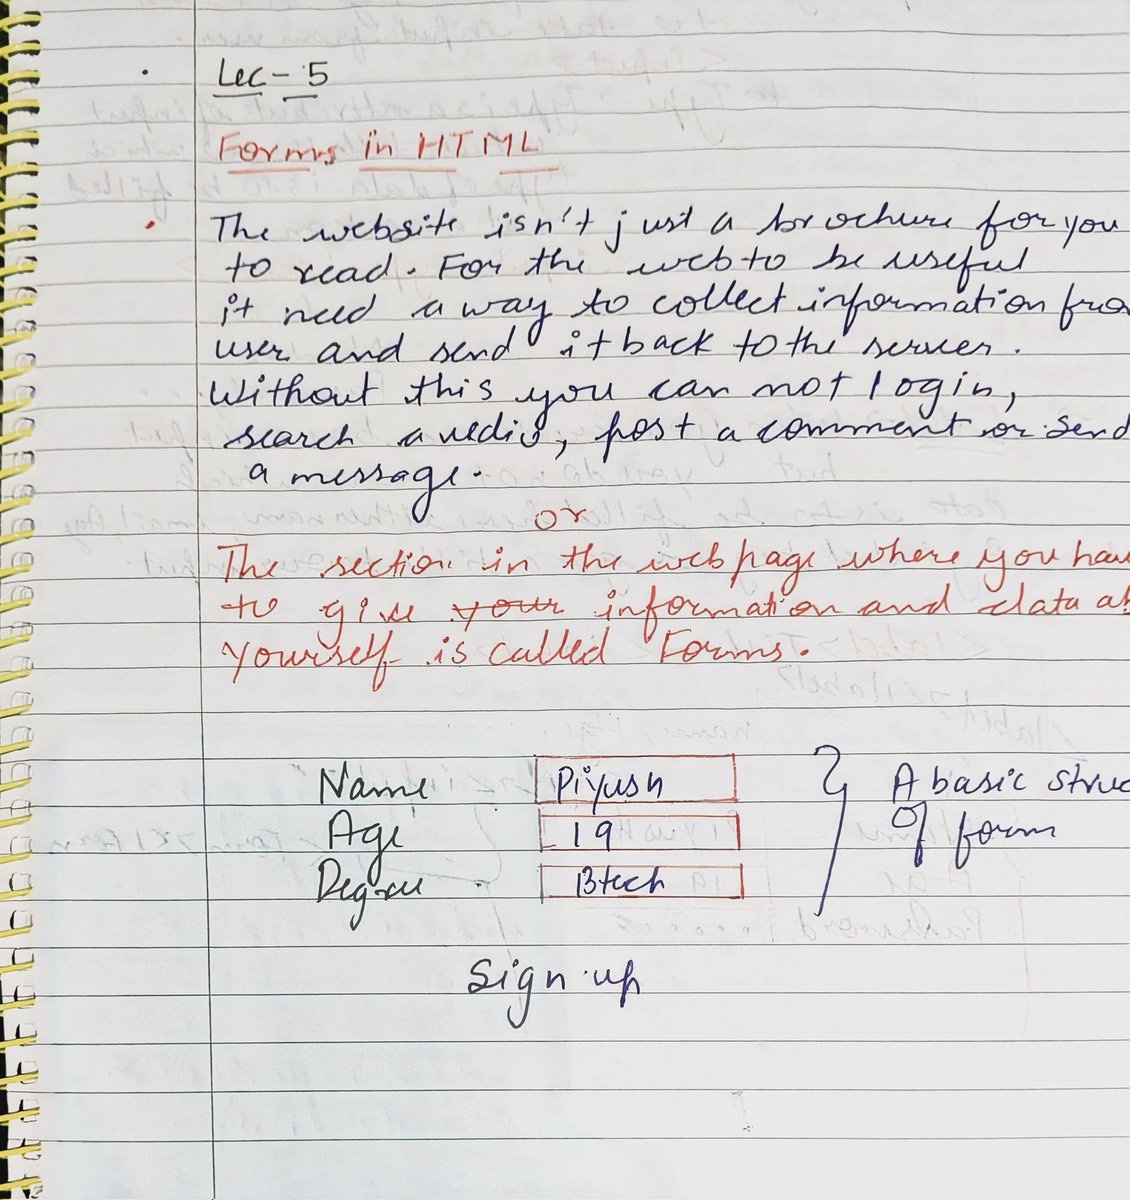 Lec - 5
Forms in HTML
The website isn't just a brochure for you
to read. For the web to be useful
it need a way to collect information fro
user and send it back to the server.
Without this you can not login,
search a vedio, post a comment or send
a message.
or
The section in the webpage where you hav
to give your information and data ab
yourself is called Forms.
Name Piyush
Age 19
Degree Btech
A basic struc
of form
Sign up